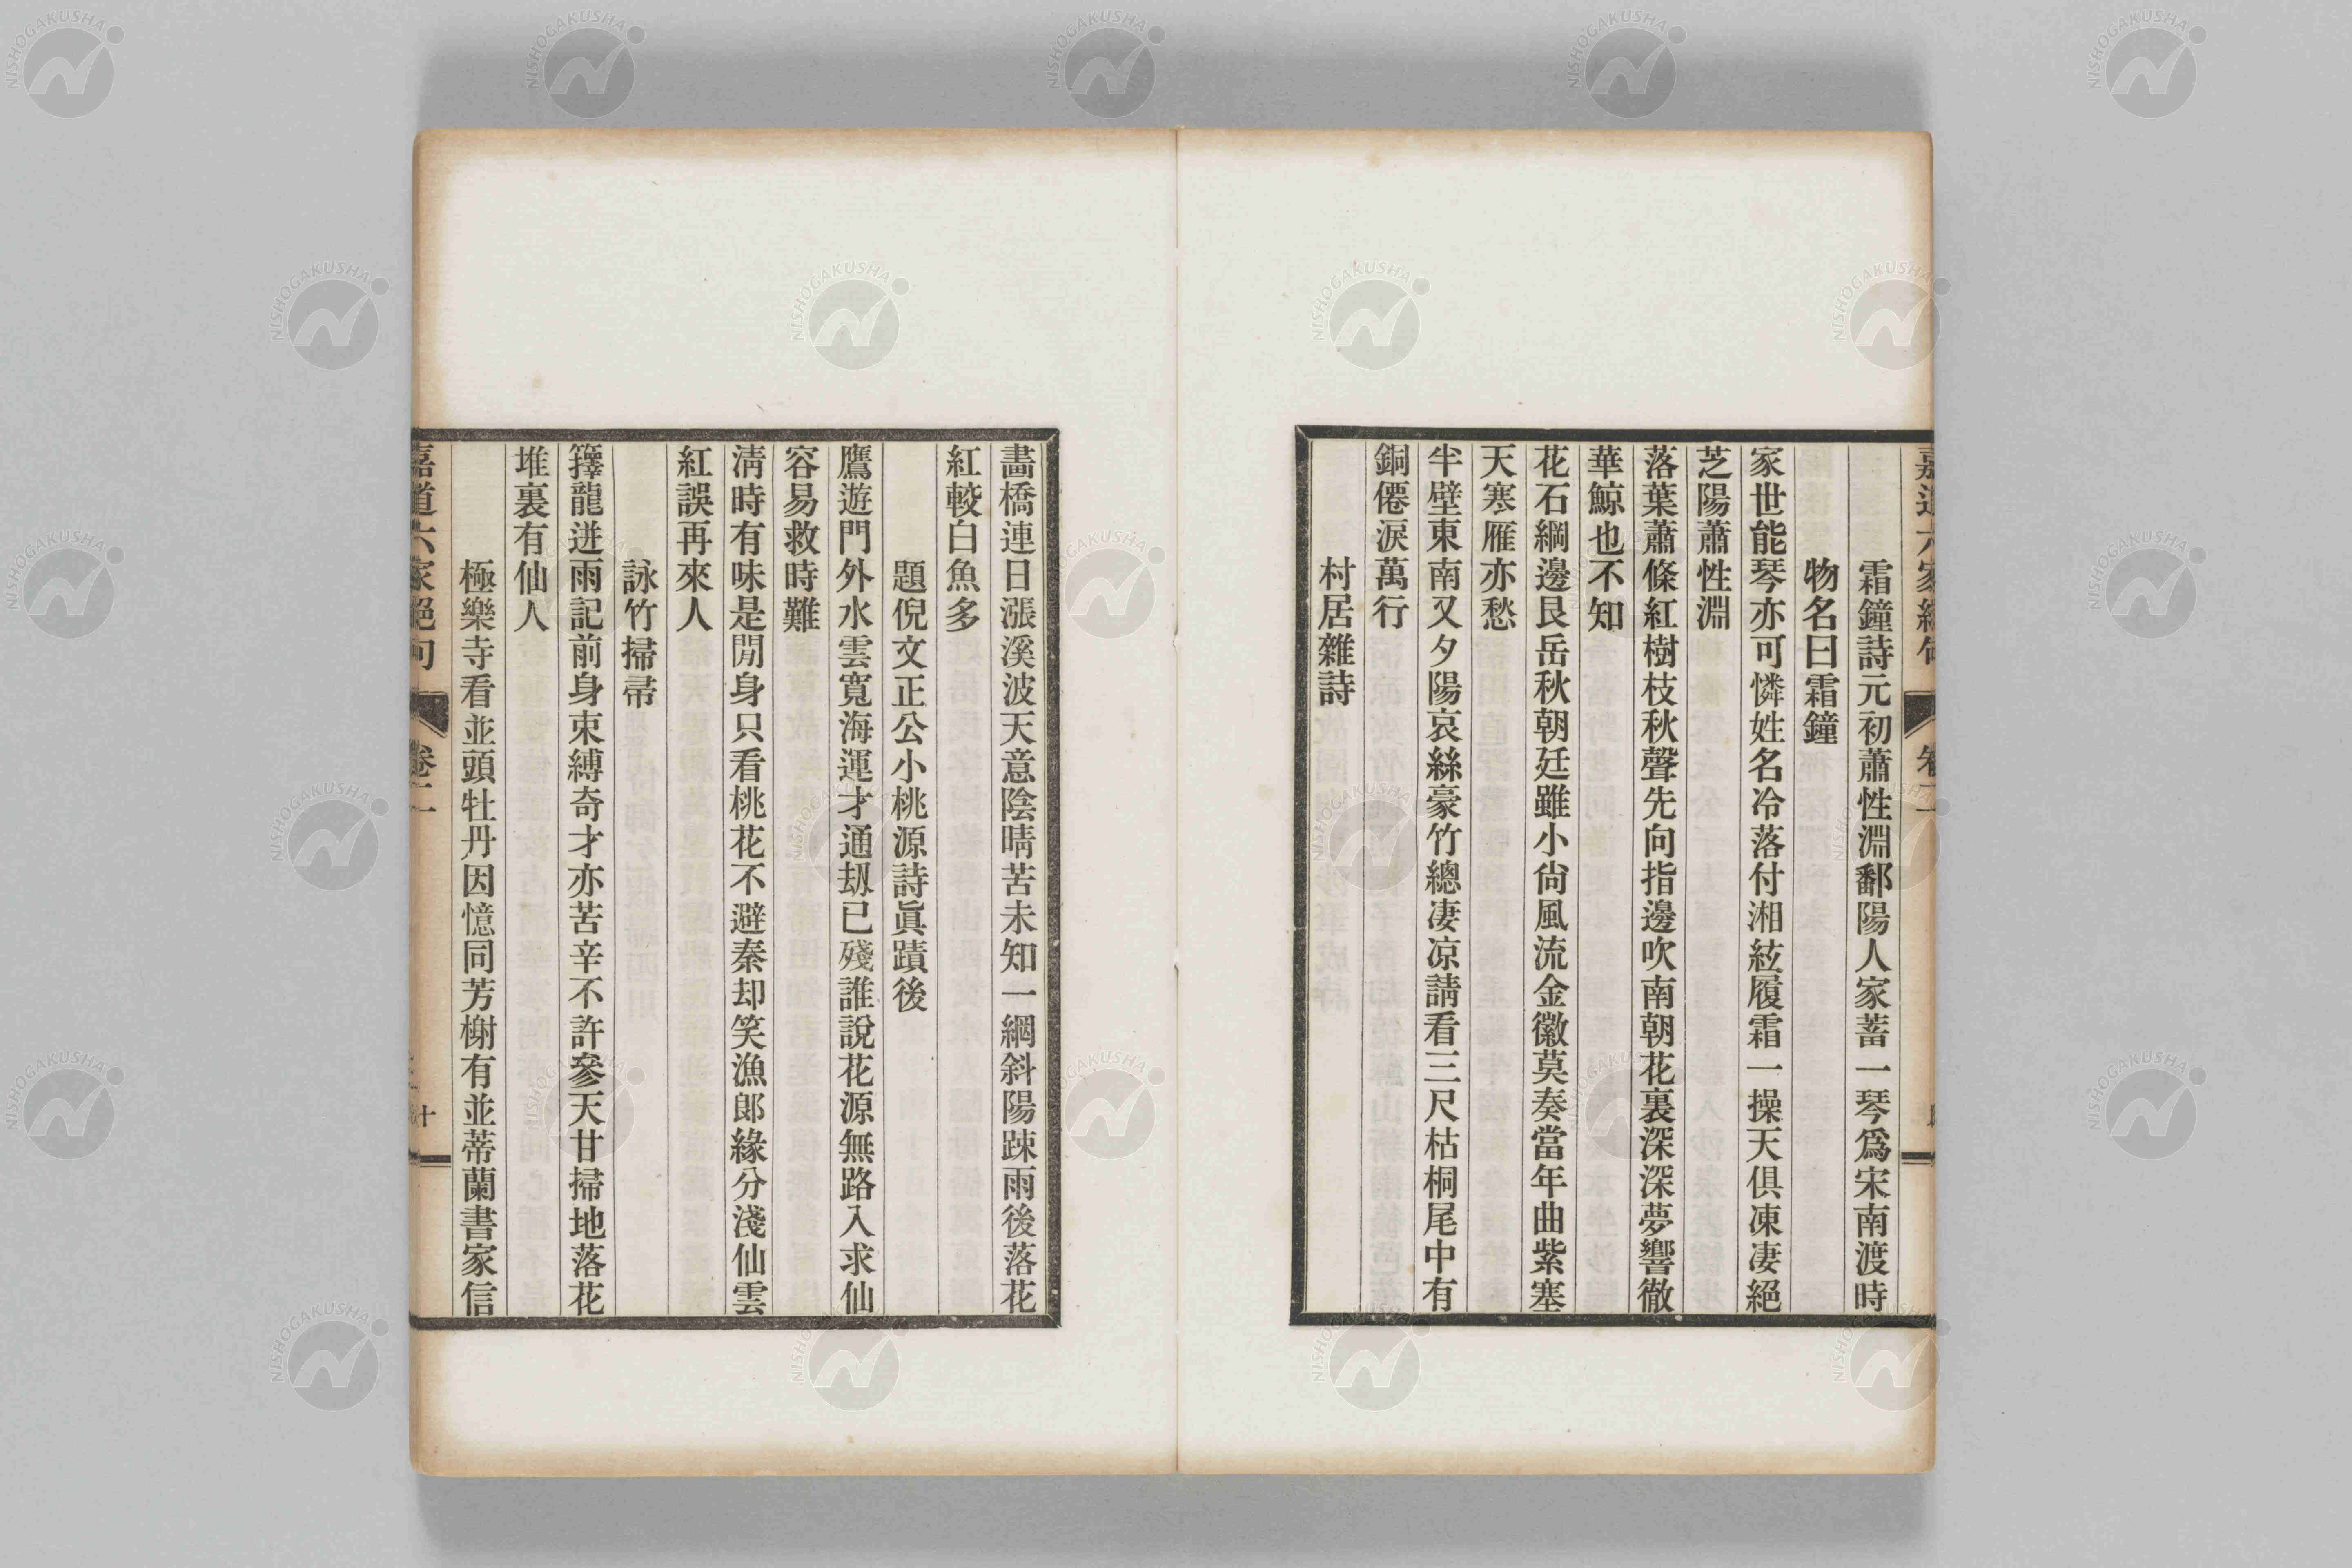 霜鐘詩元初蕭性淵鄱陽人家蓄一琴爲宋南渡時
物名曰霜鐘
家世能琴亦可憐姓名冷落付湘絃履霜一操天俱凍凄絕
芝陽蕭性淵
落葉蕭條紅樹枝秋聲先向指邊吹南朝花裏深深夢響徹
華鯨也不知
花石綱邊艮岳秋朝廷雖小尙風流金徽莫奏當年曲紫塞
天寒雁亦愁
半壁東南又夕陽哀絲豪竹總凄凉請看三尺枯桐尾中有
銅僊淚萬行
村居雜詩
畵橋連日漲溪波天意陰晴苦未知一綱斜陽踈雨後落花
紅較白魚多
題倪文正公小桃源詩眞蹟後
鷹遊門外水雲寬海運才通刼已殘誰說花源無路入求仙
容易救時難
淸時有味是閒身只看桃花不避秦却笑漁郞緣分淺仙雲
紅誤再來人
詠竹掃帚
籜龍迸雨記前身束縛奇才亦苦辛不許參天甘掃地落花
堆裏有仙人
極樂寺看並頭牡丹因憶同芳榭有並蒂蘭書家信
嘉道六家絕句
卷二
十
NISHOGAKUSHA